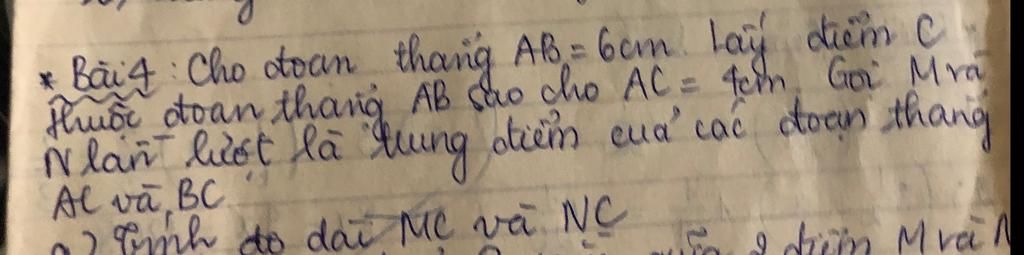 * Bài 4 : Cho đoạn thẳng AB = 6cm Lấy điểm C
thuộc đoạn thẳng AB sao cho AC = 4cm. Gọi M và
N lần lượt là trung điểm của các đoạn thẳng
AC và BC
a) Tính độ dài MC và NC
2 điểm M và N